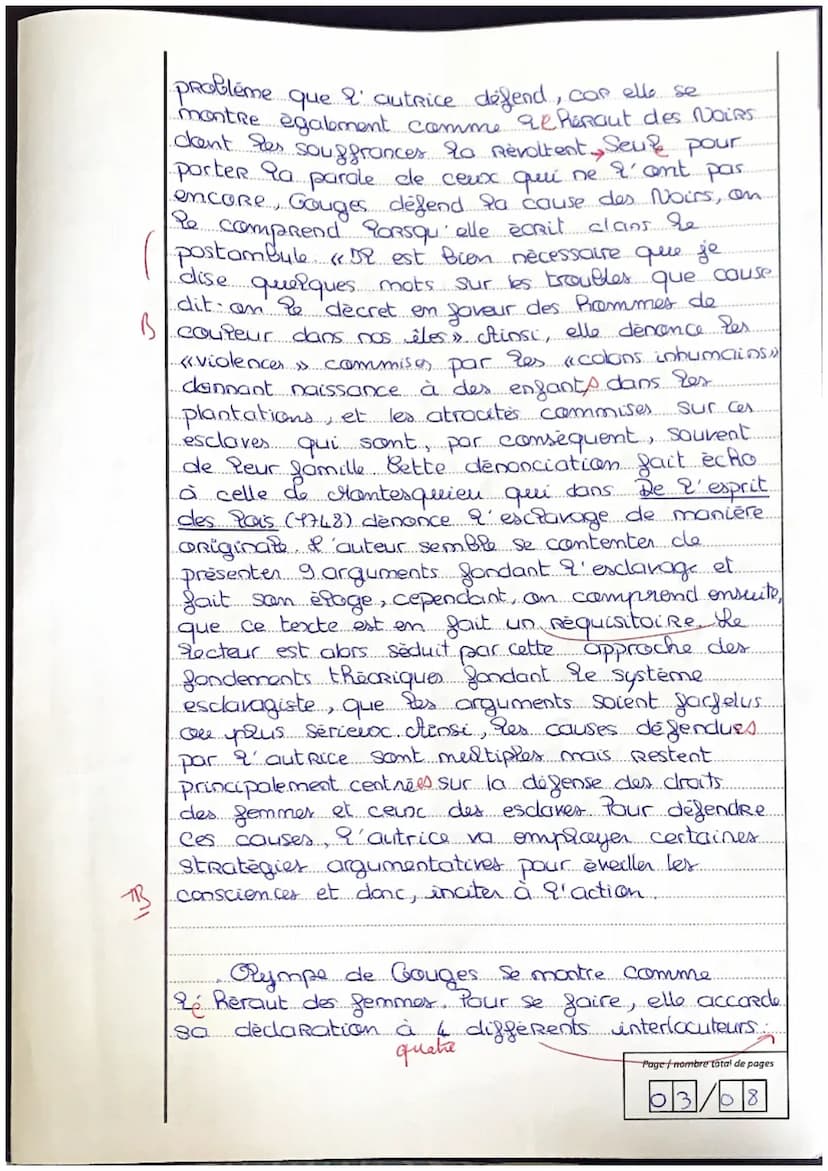 problème que l'autrice défend, car elle se
montre également comme le Héraut des Noirs
dont les souffrances la révoltent. Seule pour
porter la parole de ceux qui ne l'ont pas
encore, Gouges défend la cause des Noirs, on
le comprend lorsqu'elle écrit dans le
postambule « Il est bien nécessaire que je
dise quelques mots sur les troubles que cause
B dit-on le décret en faveur des hommes de
couleur dans nos îles». Ainsi, elle dénonce les
«violences» commises par les «colons inhumains»
donnant naissance à des enfants dans les
plantations, et les atrocités commises sur ces
esclaves qui sont, par conséquent, souvent
de leur famille. Cette dénonciation fait écho
à celle de Montesquieu qui dans De l'esprit
des lois (1748) dénonce l'esclavage de manière
originale. L'auteur semble se contenter de
présenter 9 arguments fondant l'esclavage et
fait son éloge, cependant, on comprend ensuite,
que ce texte est en fait un réquisitoire. Le
lecteur est alors séduit par cette approche des
fondements théoriques fondant le système
esclavagiste, que les arguments soient farfelus
ou plus sérieux. Ainsi, les causes défendues
par l'autrice sont multiples mais restent
principalement centrées sur la défense des droits
des femmes et ceux des esclaves. Pour défendre
ces causes, l'autrice va employer certaines
stratégies argumentatives pour éveiller les
TB consciences et donc, inciter à l'action.
Olympe de Gouges se montre comme
lé Héraut des femmes. Pour se faire, elle accorde
sa déclaration à 4 différents interlocuteurs :
quatre
Page / nombre total de pages
03/08